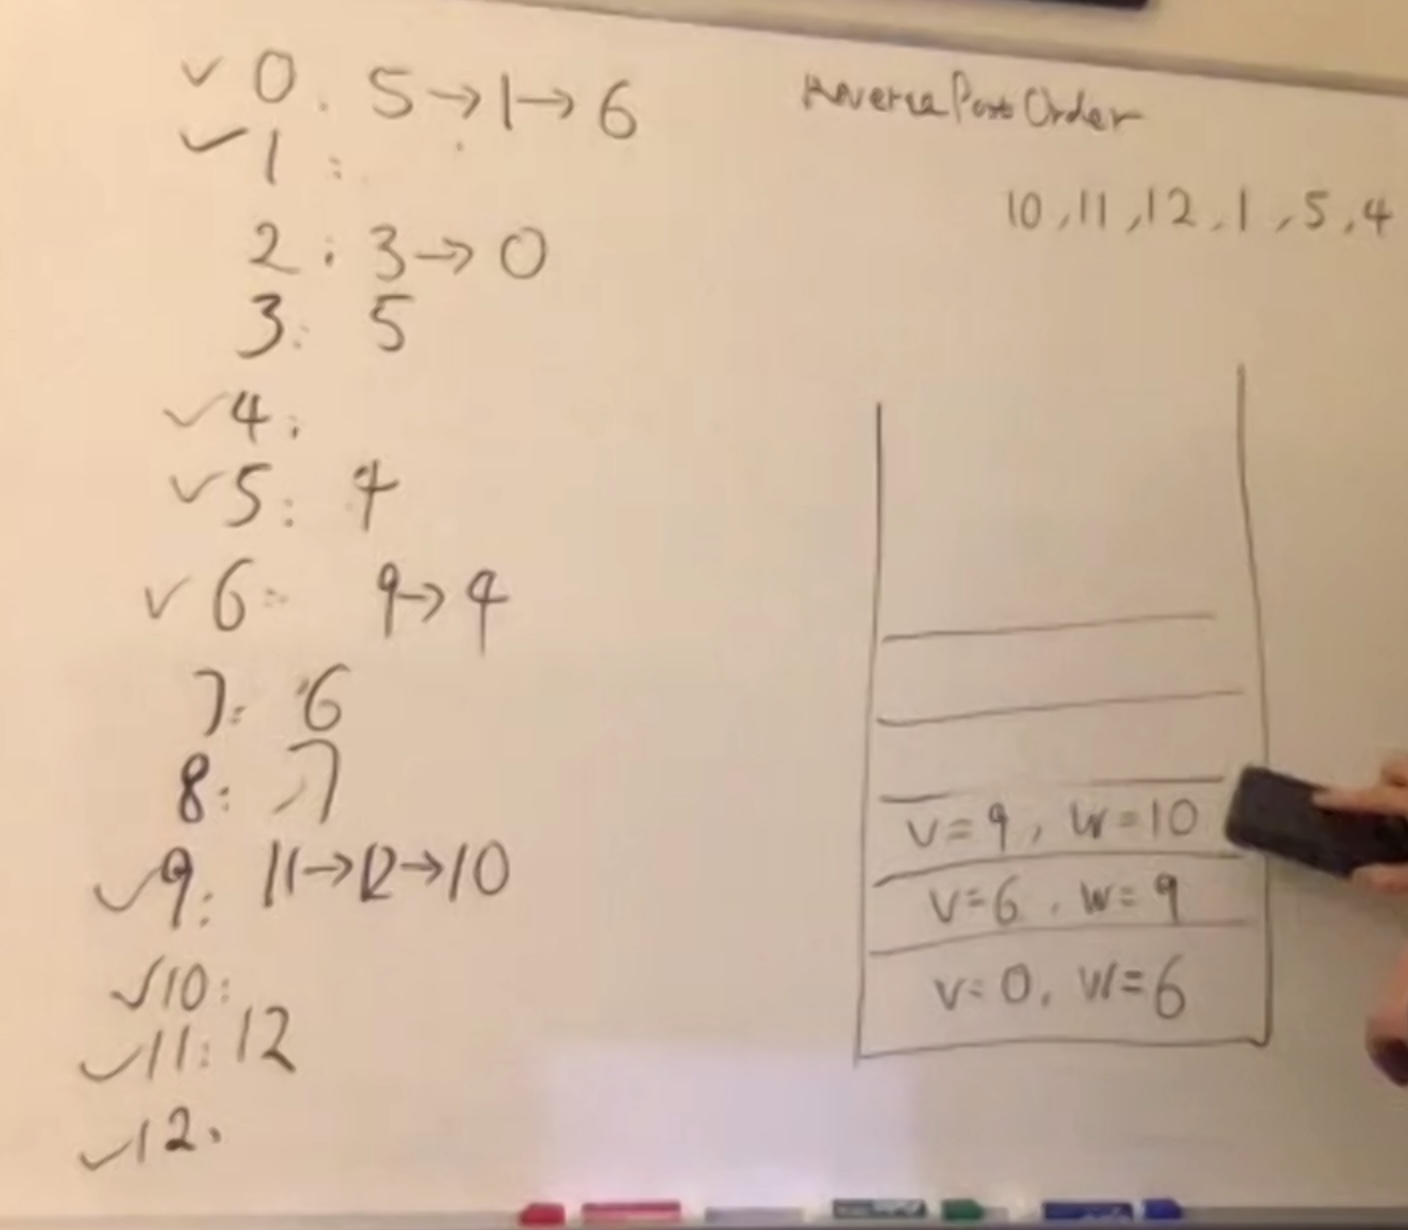 ✓ 0. 5→1→6
✓ 1:
2: 3→0
3: 5
✓ 4:
✓ 5: 4
✓ 6: 9→4
7: 6
8: 7
✓ 9: 11→12→10
✓ 10:
✓ 11: 12
✓ 12.
Reverse Post Order
10, 11, 12, 1, 5, 4
v=9, w=10
v=6, w=9
v=0, w=6